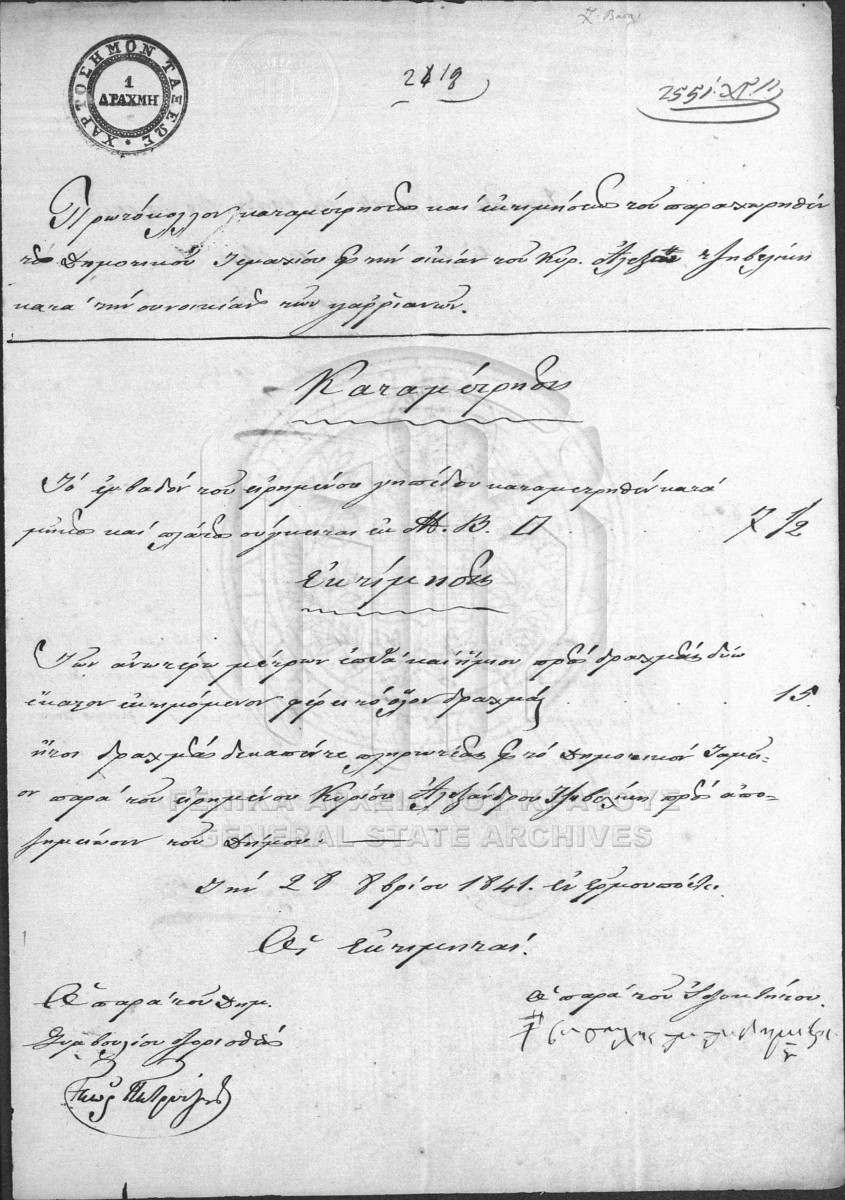 ΧΑΡΤΟΣΗΜΟΝ ΤΑΞΕΩΣ
1
ΔΡΑΧΜΗ
Πρωτόκολλον καταμετρήσεως και εκτιμήσεως του παραχωρηθέν
τος Δημοτικού Τεμαχίου εις την οικίαν του Κυρ.
κατά την συνοικίαν των
Καταμέτρησις
Το εμβαδόν του ειρημένου γηπέδου καταμετρηθέν κατά
μήκος και πλάτος σύγκειται εκ Μ. Β. □ 7 1/2
Εκτίμησις
Των ανωτέρω μέτρων επτά και ήμισυ προς δραχμάς δύω
έκαστον εκτιμόμενον φέρει το όλον δραχμάς 15.
ήτοι δραχμάς δεκαπέντε πληρωτέας εις το Δημοτικόν Ταμεί-
ον παρά του ειρημένου Κυρίου Αλεξάνδρου προς απο-
ζημείωσιν του Δήμου.
Την 28 8βρίου 1841. εν Ερμουπόλει.
Οι Εκτιμηταί.
Ο παρά του Δημ.
Συμβουλίου διορισθείς
Ο παρά του Ιδιοκτήτου.
ΓΕΝΙΚΑ ΑΡΧΕΙΑ ΤΟΥ ΚΡΑΤΟΥΣ
GENERAL STATE ARCHIVES